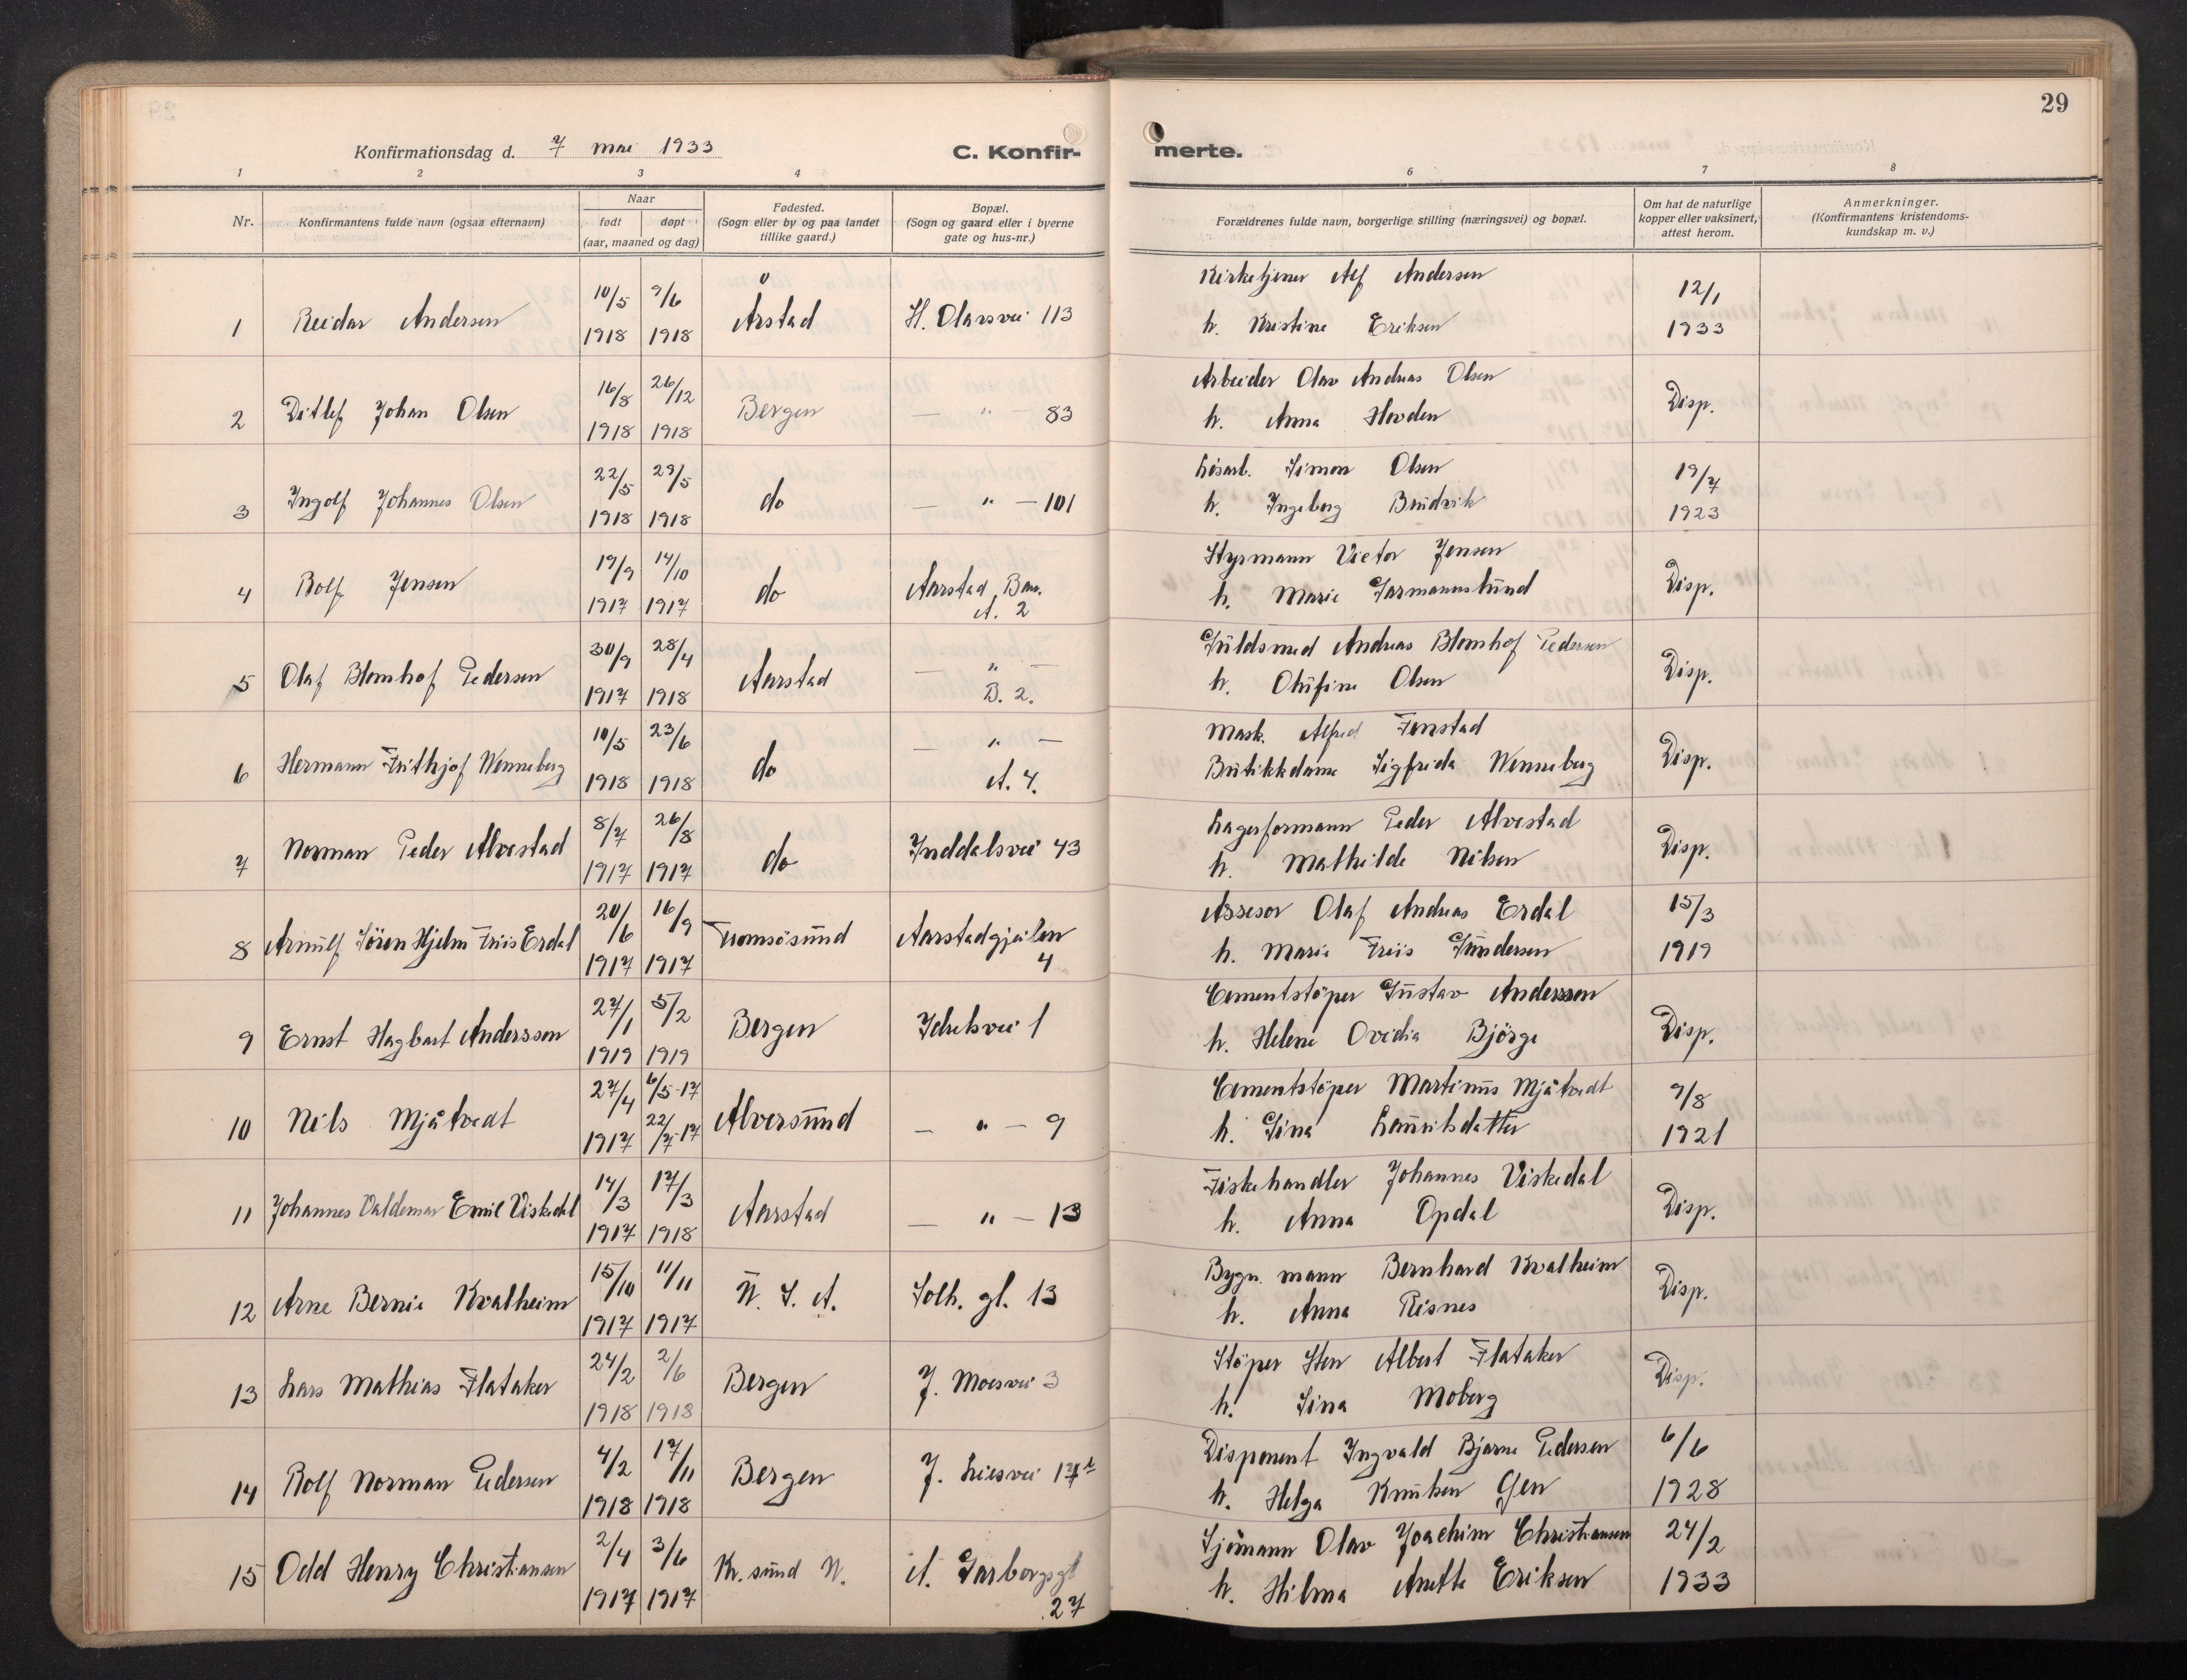 29
Konfirmationsdag d. 7 mai 1933
C. Konfir-
merte.
1 2 3 4 6 7 8
Nr.
Konfirmantens fulde navn (ogsaa efternavn)
Naar
født døpt
(aar, maaned og dag)
Fødested.
(Sogn eller by og paa landet
tillike gaard.)
Bopæl.
(Sogn og gaard eller i byerne
gate og hus-nr.)
Forældrenes fulde navn, borgerlige stilling (næringsvei) og bopæl.
Om hat de naturlige
kopper eller vaksinert,
attest herom.
Anmerkninger.
(Konfirmantens kristendoms-
kundskap m. v.)
1 Reidar Andersen 10/5 1918 9/6 1918 Årstad H. Olavsvei 113
Kirketjener Alf Andersen 12/1
h. Kristine Eriksen 1933
2 Ditlef Johan Olsen 16/8 1918 26/12 1918 Bergen — " — 83
Arbeider Olav Andreas Olsen Disp.
h. Anna Hovden
3 Ingolf Johannes Olsen 22/5 1918 29/5 1918 do — " — 101
Løsarb. Simon Olsen 19/7
h. Ingeborg Brudvik 1923
4 Rolf Jensen 19/9 1917 14/10 1917 do Aarstad Bar. A. 2
Styrmann Victor Jensen Disp.
h. Marie
5 Olaf Blomhof Pedersen 30/9 1917 28/4 1918 Aarstad — " — B. 2.
Guldsmed Andreas Blomhof Pedersen Disp.
h. Olufine Olsen
6 Hermann Frithjof Wenneberg 10/5 1918 23/6 1918 do — " — A. 4.
Mask. Alfred Fenstad Disp.
Butikkdame Sigfrida Wenneberg
7 Norman Peder Alvestad 8/7 1917 26/8 1917 do Inddalsvei 43
Lagerformann Peder Alvestad Disp.
h. Mathilde Nilsen
8 Arnulf Søren Hjelm Friis Erdal 20/6 1917 16/9 1917 Tromsösund Aarstadgjeilen 4
Assesor Olaf Andreas Erdal 15/3
h. Marie Friis Gundersen 1919
9 Ernst Hagbart Anderssen 27/1 1919 5/2 1919 Bergen Idrelsvei 1
Cementstöper Gustav Anderssen Disp.
h. Helene Ovidia Björge
10 Nils Mjåtvedt 27/4 1917 6/5-17 22/7-17 Alversund — " — 9
Cementstöper Martinus Mjåtvedt 9/8
h. Gina Lauritsdatter 1921
11 Johannes Valdemar Emil Viskedal 14/3 1917 17/3 1918 Aarstad — " — 13
Fiskehandler Johannes Viskedal Disp.
h. Anna Opdal
12 Arne Bernie Kvalheim 15/10 1917 11/11 1917 U. S. A. Solh. gt. 13
Bygn. mann Bernhard Kvalheim Disp.
h. Anna Risnes
13 Lars Mathias Flataker 24/2 1918 2/6 1918 Bergen J. Moesvei 3
Stöper Sten Albert Flataker Disp.
h. Sina Moberg
14 Rolf Norman Pedersen 4/2 1918 17/11 1918 Bergen J. Liesvei 17
Disponent Ingvald Bjarne Pedersen 6/6
h. Helga Knutsen Gjen 1928
15 Odd Henry Christiansen 2/4 1917 3/6 1917 Kr. sund N. A. Garborgsgt 27
Sjömann Olav Joachim Christiansen 24/2
h. Hilma Anette Eriksen 1933